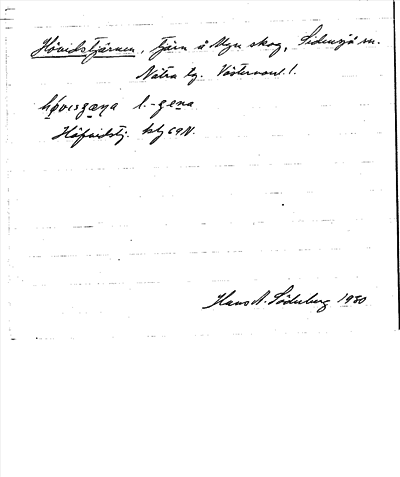 Hövidstjärnen, Tjärn å Myn skog, Sidensjö sn.
Nätra tg. Västernorrl. l.
hǿvısgæṇa l. -gena
Höfvidstj. ktj 69N.
Hans A. Söderberg 1930